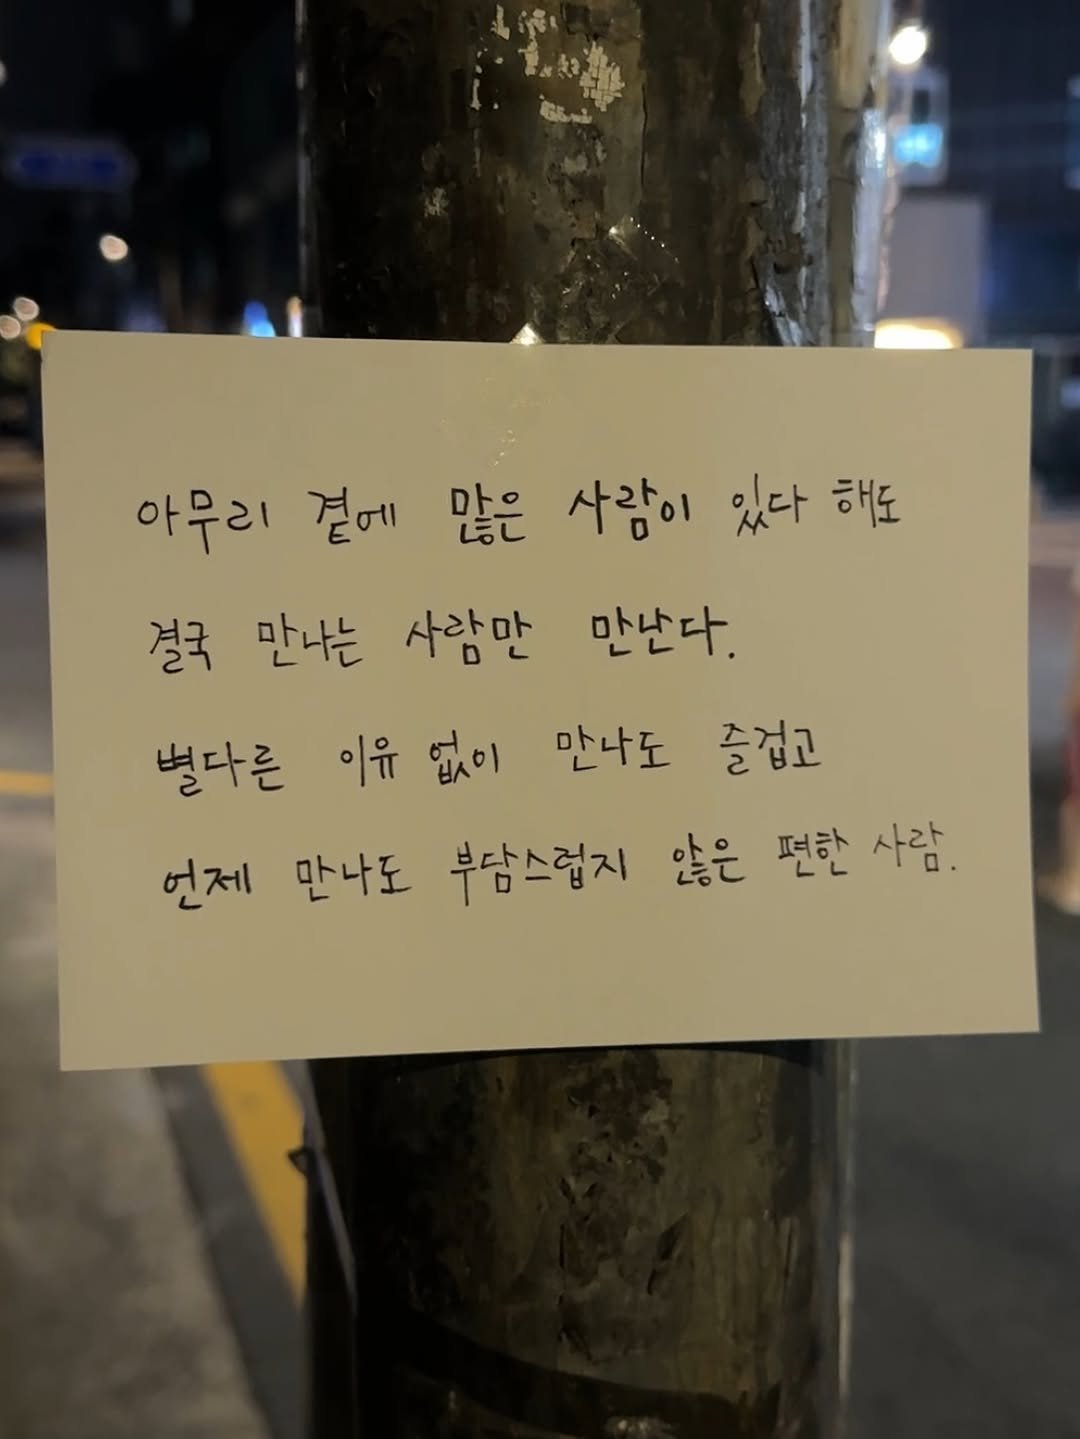 아무리 곁에 많은 사람이 있다 해도
결국 만나는 사람만 만난다.
별다른 이유 없이 만나도 즐겁고
언제 만나도 부담스럽지 않은 편한 사람.